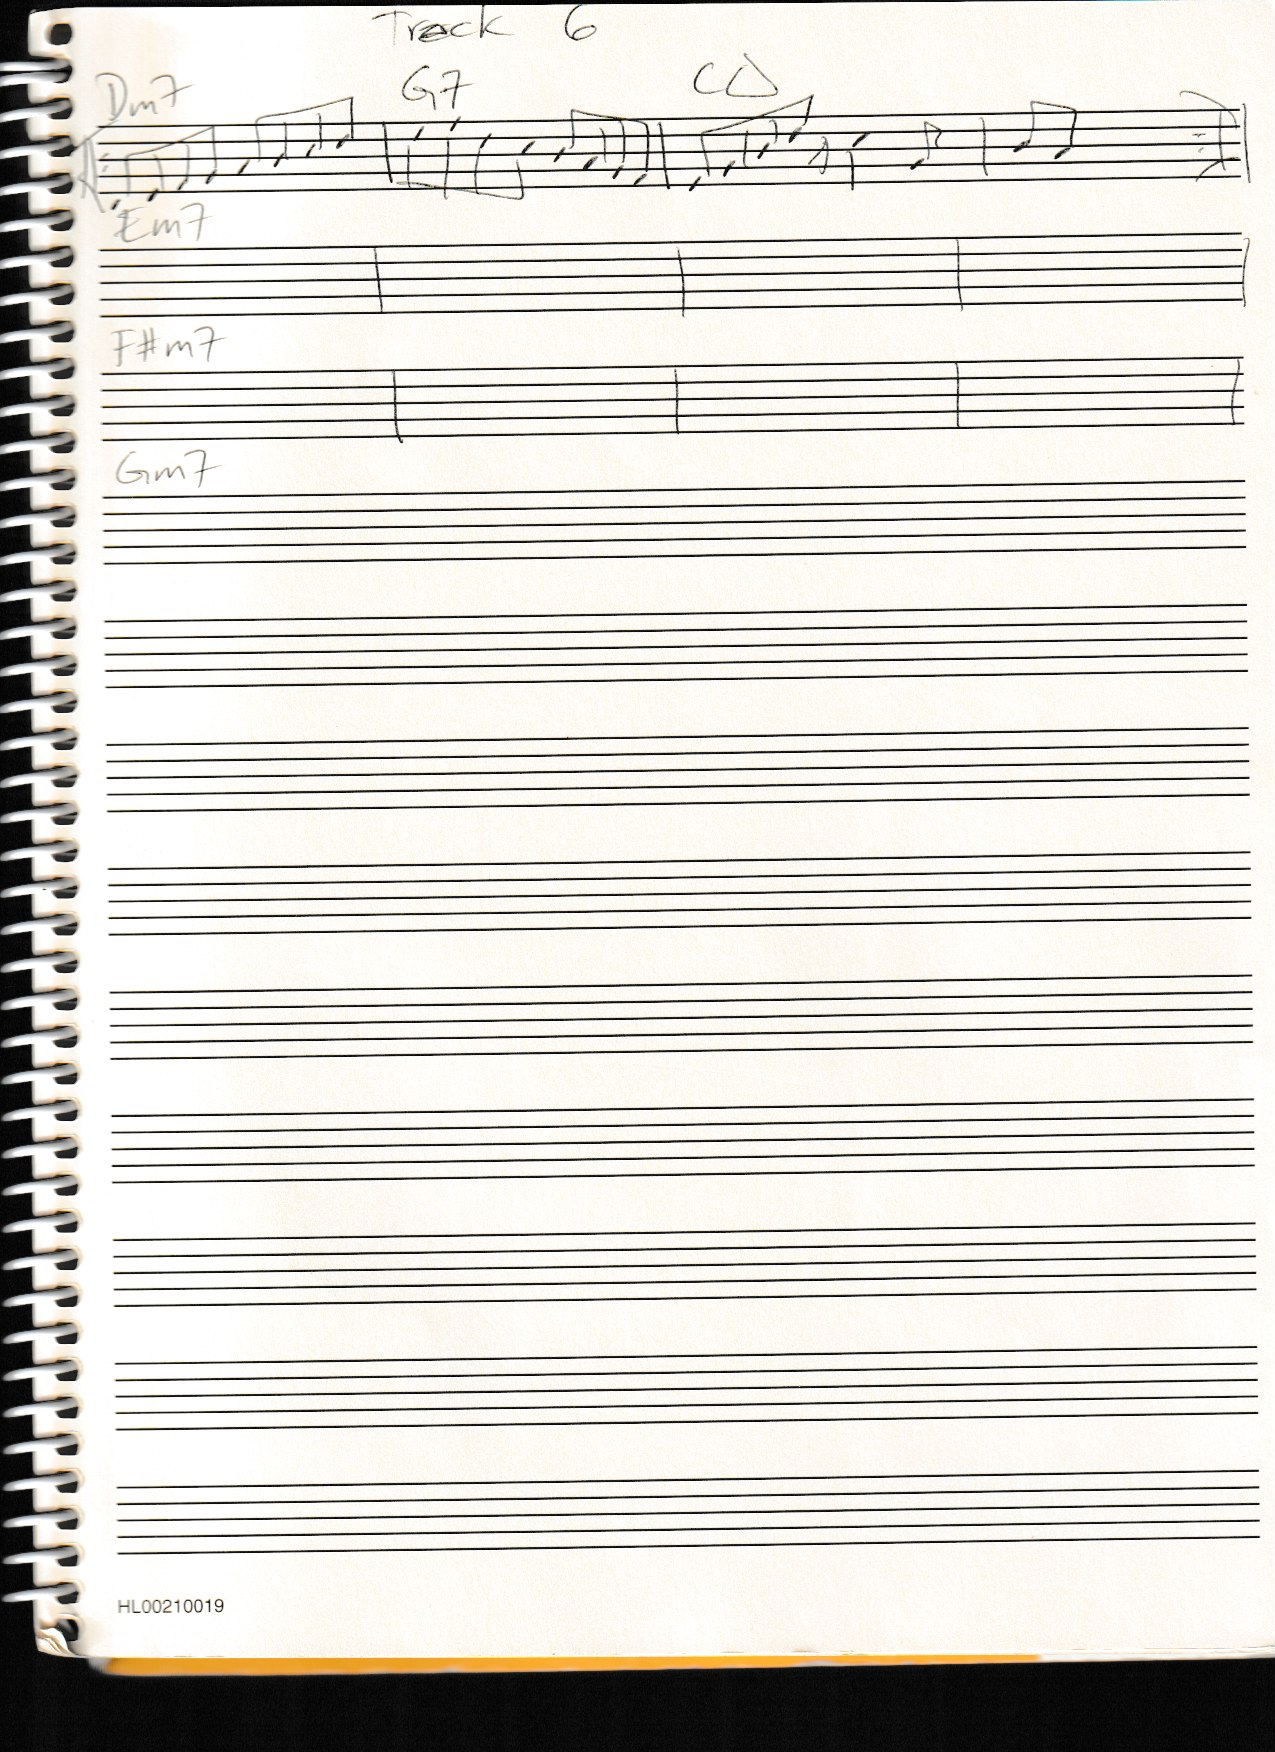 Track 6
Dm7 G7 C△
Em7
F#m7
Gm7
HL00210019